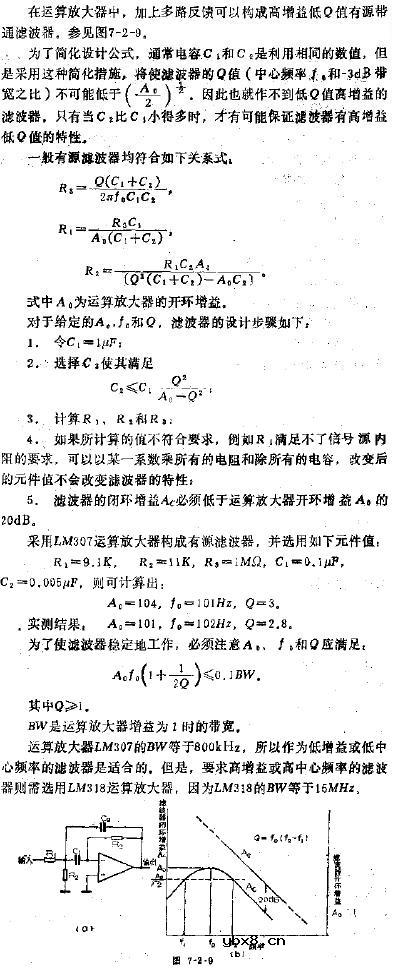 在运算放大器中，加上多路反馈可以构成高增益低Q值有源带
通滤波器，参见图7-2-9。
为了简化设计公式，通常电容C₁和C₂是利用相同的数值，但
是采用这种简化措施，将使滤波器的Q值（中心频率f₀和-3dB带
宽之比）不可能低于(A₀/2)^½。因此也就作不到低Q值高增益的
滤波器，只有当C₂比C₁小得多时，才有可能保证滤波器有高增益
低Q值的特性。
一般有源滤波器均符合如下关系式：
R₃=Q(C₁+C₂)/2πf₀C₁C₂，
R₁=R₃C₁/A₀(C₁+C₂)，
R₂=R₁C₂A₀/(Q²(C₁+C₂)-A₀C₂)。
式中A₀为运算放大器的开环增益。
对于给定的A₀，f₀和Q，滤波器的设计步骤如下：
1. 令C₁=1μF；
2. 选择C₂使其满足
C₂≤C₁ Q²/A₀-Q²；
3. 计算R₁、R₂和R₃；
4. 如果所计算的值不符合要求，例如R₁满足不了信号源内
阻的要求，可以以某一系数乘所有的电阻和除所有的电容，改变后
的元件值不会改变滤波器的特性；
5. 滤波器的闭环增益A_C必须低于运算放大器开环增益A₀的
20dB。
采用LM307运算放大器构成有源滤波器，并选用如下元件值：
R₁=9.1K， R₂=11K，R₃=1MΩ，C₁=0.1μF，
C₂=0.005μF，则可计算出：
A₀=104，f₀=101Hz，Q=3。
实测结果：A₀=101，f₀=102Hz，Q=2.8。
为了使滤波器稳定地工作，必须注意A₀、f₀和Q应满足：
A₀f₀(1+1/2Q)≤0.1BW。
其中Q≥1。
BW是运算放大器增益为1时的带宽。
运算放大器LM307的BW等于800kHz，所以作为低增益或低中
心频率的滤波器是适合的。但是，要求高增益或高中心频率的滤波
器则需选用LM318运算放大器，因为LM318的BW等于15MHz。
输入
R₁
C₁
C₂
R₂
输出
(a)
滤波器闭环增益
Q=f₀(f₂-f₁)
A₀
A₀/√2
A_C
20dB
f₁
f₀
频率
A₀
1
(b)
ybx8.cn
图 7-2-9